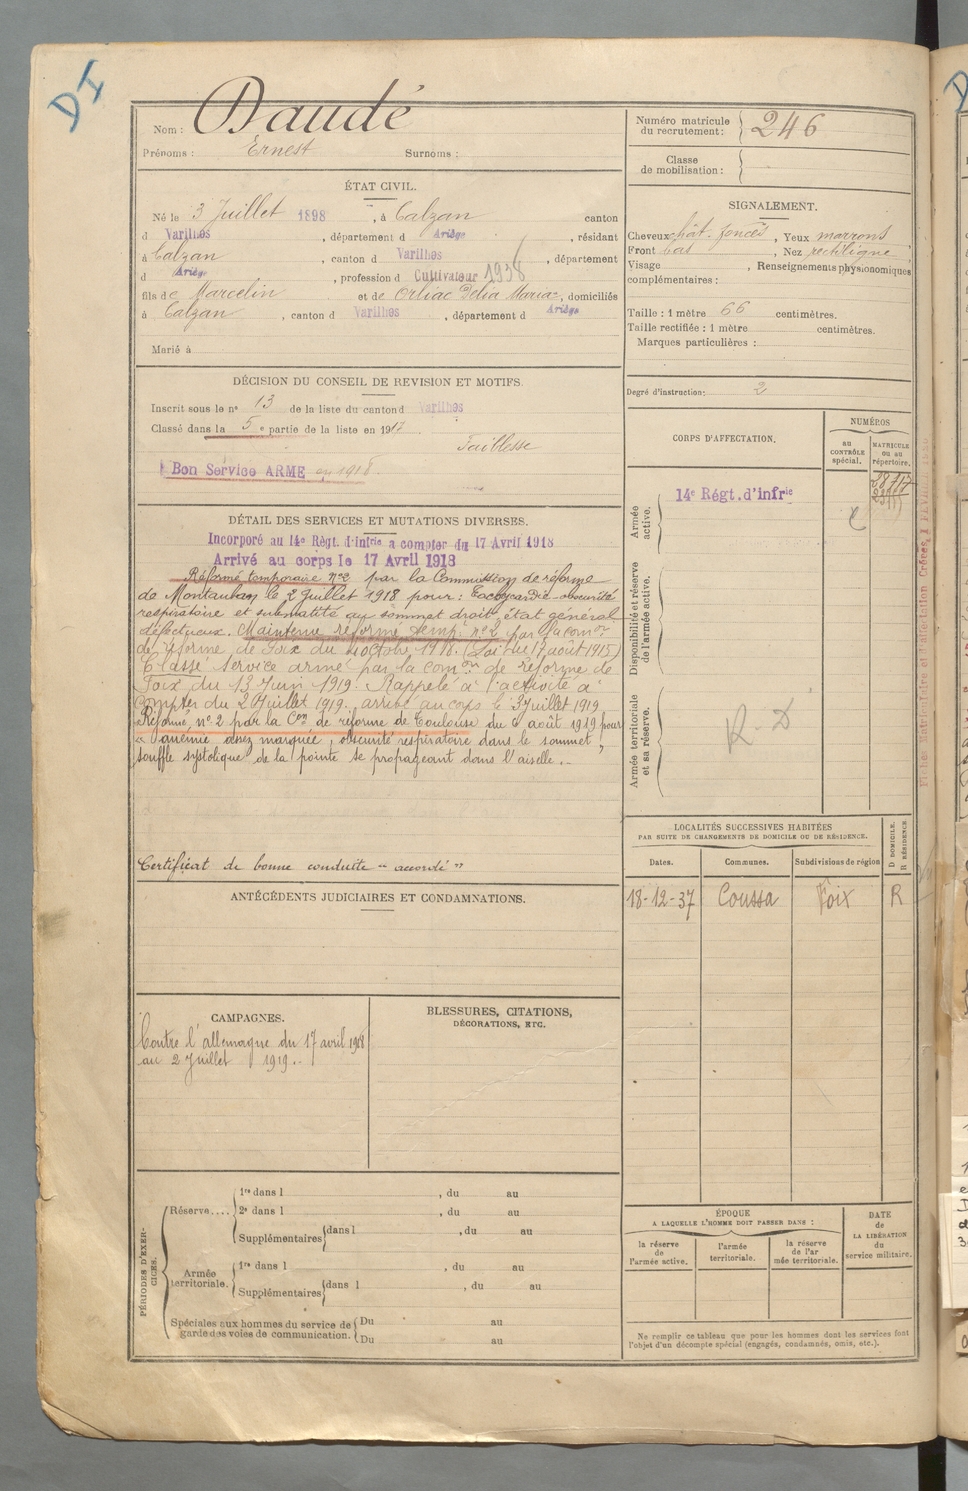 DI
Nom : Daudé
Prénoms : Ernest Surnoms :
Numéro matricule du recrutement : 246
Classe de mobilisation :
ÉTAT CIVIL.
Né le 3 Juillet 1898, à Calzan canton
d Varilhes, département d Ariège, résidant
à Calzan, canton d Varilhes, département
d Ariège, profession d Cultivateur 1938
fils de Marcelin et de Orliac Délia Maria, domiciliés
à Calzan, canton d Varilhes, département d Ariège
Marié à
SIGNALEMENT.
Cheveux chât. foncés, Yeux marrons
Front bas, Nez rectiligne
Visage , Renseignements physionomiques
complémentaires :
Taille : 1 mètre 66 centimètres.
Taille rectifiée : 1 mètre centimètres.
Marques particulières :
Degré d'instruction: 2
DÉCISION DU CONSEIL DE REVISION ET MOTIFS.
Inscrit sous le n° 13 de la liste du canton d Varilhes
Classé dans la 5e partie de la liste en 1917
Faiblesse
Bon Service ARME en 1918.
DÉTAIL DES SERVICES ET MUTATIONS DIVERSES.
Incorporé au 14e Régt. d'Infie à compter du 17 Avril 1918
Arrivé au corps le 17 Avril 1918
Réformé temporaire n°2 par la Commission de réforme
de Montauban le 2 Juillet 1918 pour : Tachycardie - obscurité
respiratoire et submatité au sommet droit état général
défectueux. Maintenu réformé temp. n° 2 par la comon
de réforme de Foix du octobre 1918. (Loi du 17 août 1915)
Classé service armé par la comon de réforme de
Foix du 13 Juin 1919. Rappelé à l'activité à
compter du 2 Juillet 1919. arrivé au corps le 3 Juillet 1919
Réformé n° 2 par la Con de réforme de Toulouse du 6 août 1919 pour
"anémie assez marquée, obscurité respiratoire dans le sommet,
souffle systolique de la pointe se propageant dans l'aiselle.
Certificat de bonne conduite "accordé"
CORPS D'AFFECTATION.
NUMÉROS
au CONTRÔLE spécial.
MATRICULE ou au répertoire.
Armée active.
14e Régt. d'infie
Disponibilité et réserve de l'armée active.
Armée territoriale et sa réserve.
R. D
LOCALITÉS SUCCESSIVES HABITÉES
PAR SUITE DE CHANGEMENTS DE DOMICILE OU DE RÉSIDENCE.
D DOMICILE. R RÉSIDENCE
Dates. Communes. Subdivisions de région
18-12-37 Coussa Foix R
ANTÉCÉDENTS JUDICIAIRES ET CONDAMNATIONS.
CAMPAGNES.
Contre l'allemagne du 17 avril 1918
au 2 Juillet 1919..
BLESSURES, CITATIONS,
DÉCORATIONS, ETC.
PÉRIODES D'EXERCICES.
Réserve....
1re dans l , du au
2e dans l , du au
Supplémentaires dans l , du au
Armée territoriale.
1re dans l , du au
Supplémentaires dans l , du au
Spéciales aux hommes du service de
garde des voies de communication.
Du au
Du au
ÉPOQUE
A LAQUELLE L'HOMME DOIT PASSER DANS :
la réserve de l'armée active.
l'armée territoriale.
la réserve de l'ar mée territoriale.
DATE de LA LIBÉRATION du service militaire.
Ne remplir ce tableau que pour les hommes dont les services font
l'objet d'un décompte spécial (engagés, condamnés, omis, etc.).